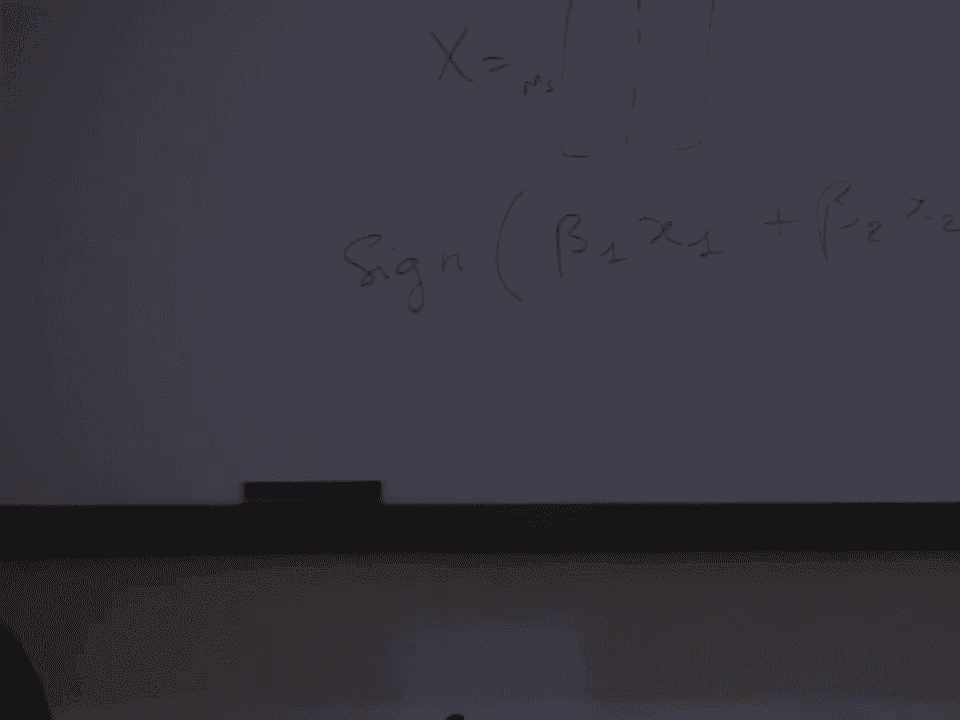 X =
Sign ( β1 x1 + β2 x2